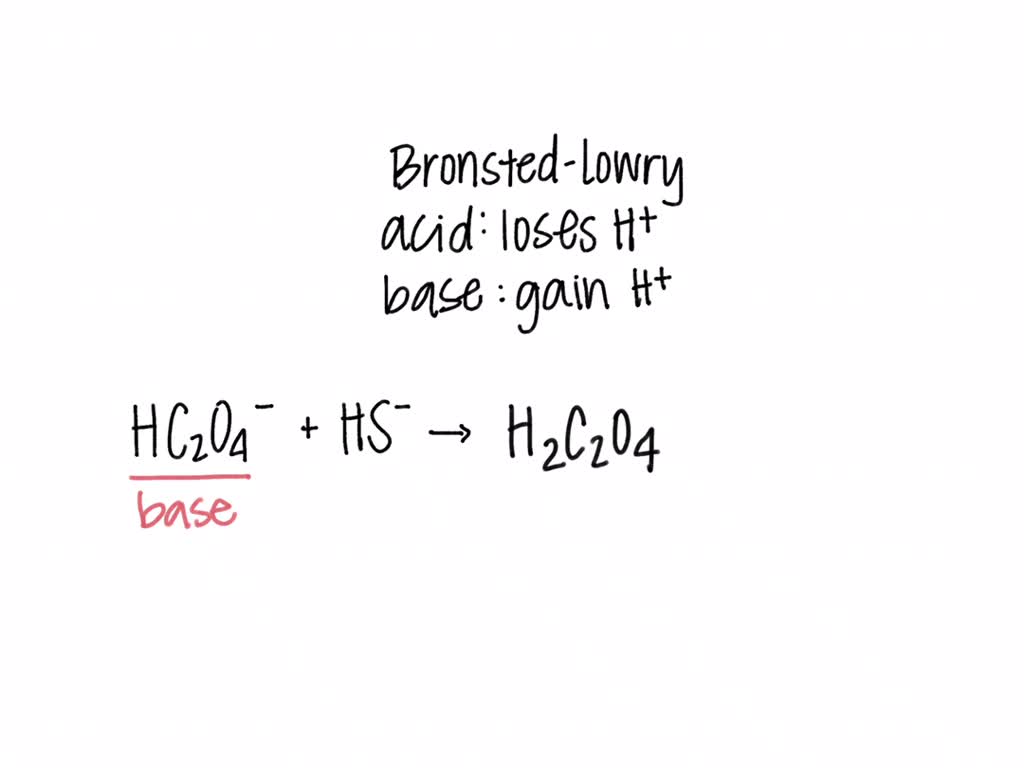 Bronsted-lowry
acid: loses H⁺
base: gain H⁺
HC₂O₄⁻ + HS⁻ → H₂C₂O₄
base